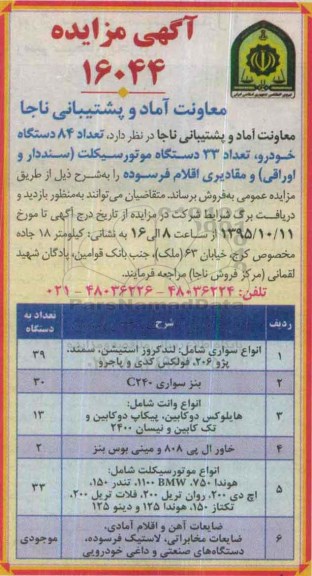 آگهی مزایده
۱۶۰۴۴
معاونت آماد و پشتیبانی ناجا
معاونت آماد و پشتیبانی ناجا در نظر دارد، تعداد ۸۴ دستگاه
خودرو، تعداد ۳۳ دستگاه موتورسیکلت (سنددار و
اوراقی) و مقادیری اقلام فرسوده را به‌شرح ذیل از طریق
مزایده عمومی به‌فروش برساند. متقاضیان می‌توانند به‌منظور بازدید و
دریافت برگ شرایط شرکت در مزایده از تاریخ درج آگهی تا مورخ
۱۳۹۵/۱۰/۱۱ از ساعت ۸ الی ۱۶ به نشانی: کیلومتر ۱۸ جاده
مخصوص کرج، خیابان ۶۳ (ملک)، جنب بانک قوامین، پادگان شهید
لقمانی (مرکز فروش ناجا) مراجعه فرمایند.
تلفن: ۴۸۰۳۶۲۲۴ - ۴۸۰۳۶۲۲۶ - ۰۲۱
ردیف شرح تعداد به دستگاه
۱ انواع سواری شامل: لندکروز استیشن، سمند، پژو ۲۰۶، فولکس کدی و پاجرو ۳۹
۲ بنز سواری C۲۴۰ ۳۰
۳ انواع وانت شامل:
هایلوکس دوکابین، پیکاپ دوکابین و
تک کابین و نیسان ۲۴۰۰ ۱۳
۴ خاور ال پی ۸۰۸ و مینی بوس بنز ۲
۵ انواع موتورسیکلت شامل:
هوندا ۷۵۰، BMW ۱۱۰۰، تندر ۱۵۰،
اچ دی ۲۰۰، روان تریل ۲۰۰، فلات تریل ۲۰۰،
تکتاز ۱۵۰، هوندا ۱۲۵ و دینو ۱۲۵ ۳۳
۶ ضایعات آهن و اقلام آمادی،
ضایعات مخابراتی، لاستیک فرسوده،
دستگاه‌های صنعتی و داغی خودرویی موجودی